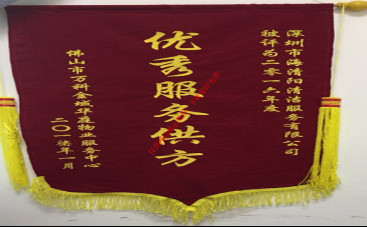 深圳市海清阳清洁服务有限公司
被评为二零一六年度
优秀服务供方
佛山市万科金域华庭物业服务中心
二〇一柒年一月